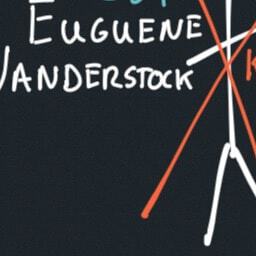 EUGUENE
VANDERSTOCK